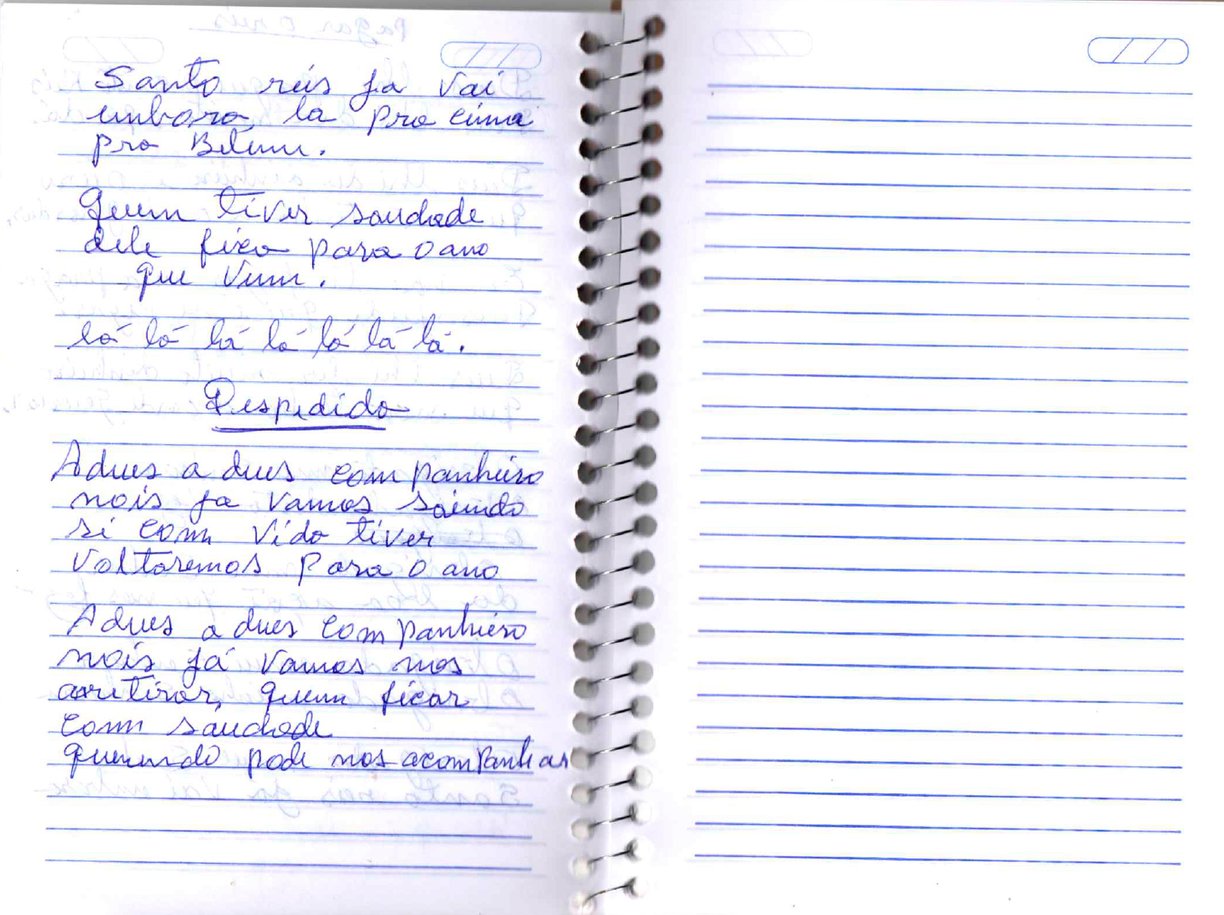 Santo reis ja vai
embora, la pra cima
pra Belem.
Quem tiver saudade
dele fica para o ano
que vem.
lá lá lá lá lá lá lá.
Despedida
Adues a dues companheiro
nois ja vamos saindo
si com vida tiver
voltaremos para o ano
Adues a dues companheiro
nois já vamos nos
arretirar, quem ficar
com saudade
querendo pode nos acompanhar